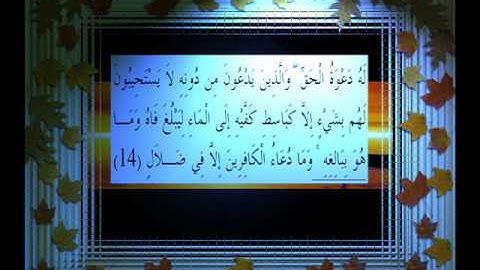 لَهُ دَعْوَةُ الْحَقِّ ۖ وَالَّذِينَ يَدْعُونَ مِن دُونِهِ لَا يَسْتَجِيبُونَ
لَهُم بِشَيْءٍ إِلَّا كَبَاسِطِ كَفَّيْهِ إِلَى الْمَاءِ لِيَبْلُغَ فَاهُ وَمَـــا
هُوَ بِبَالِغِهِ ۚ وَمَا دُعَاءُ الْكَافِرِينَ إِلَّا فِي ضَـــلَالٍ (14)